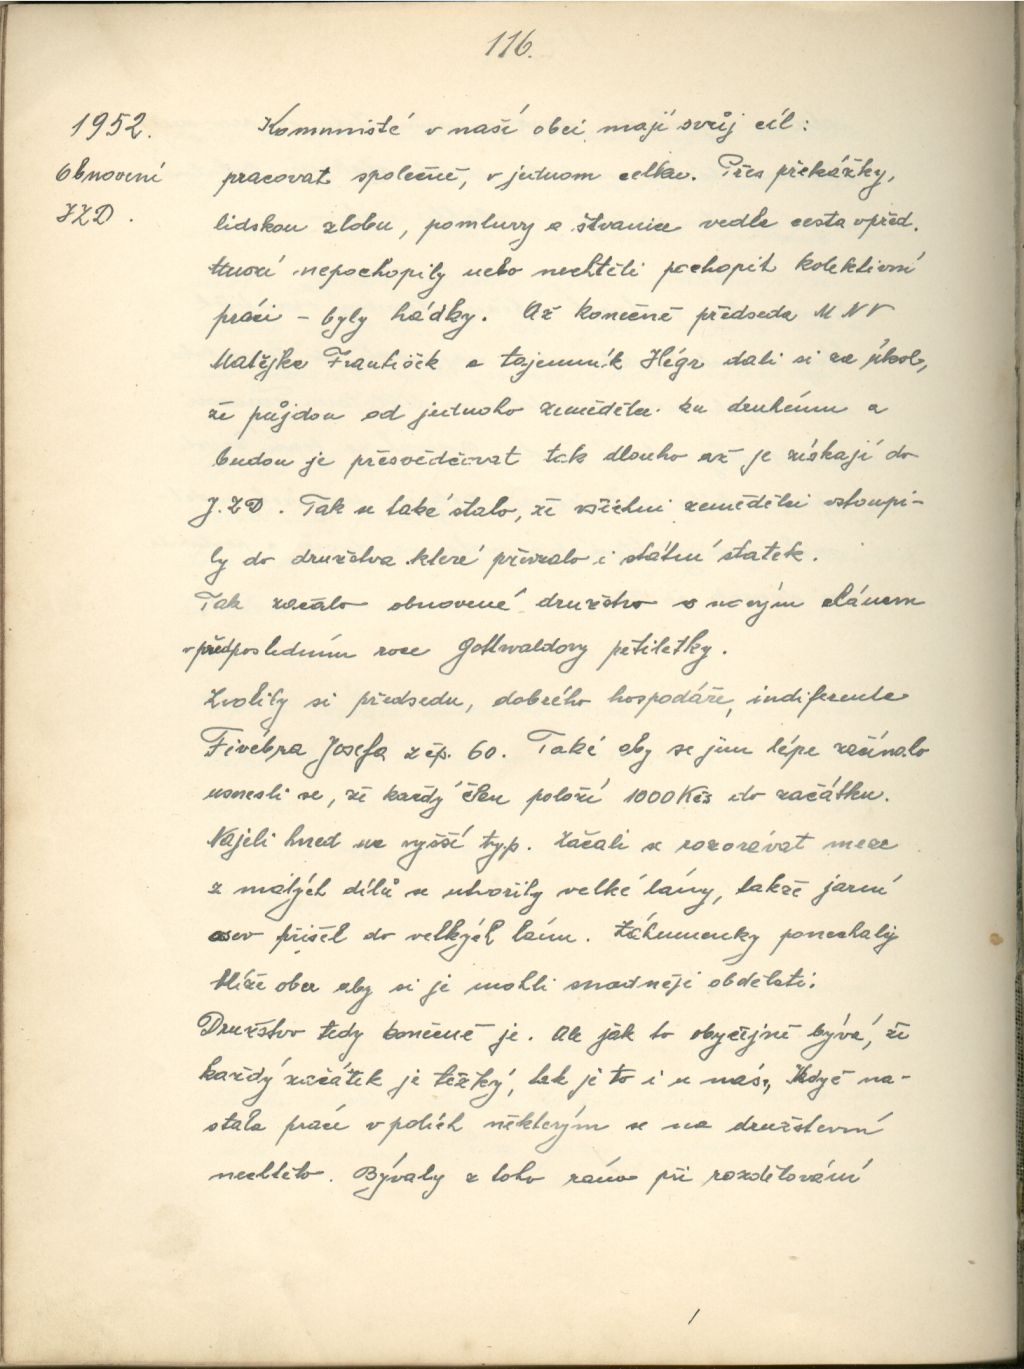 116.
1952.
Obnovení
JZD.
Komunisté v naší obci mají svůj cíl:
pracovat společně, v jednom celku. Přes překážky,
lidskou zlobu, pomluvy a štvanice vedla cesta vpřed.
Mnozí nepochopily nebo nechtěli pochopit kolektivní
práci – byly hádky. Až konečně předseda MNV
Matějka František a tajemník Hégr dali si za úkol,
že půjdou od jednoho zemědělce ku druhému a
budou je přesvědčovat tak dlouho až je získají do
J.ZD. Tak se také stalo, že všichni zemědělci vstoupi-
ly do družstva které převzalo i státní statek.
Tak začalo obnovené družstvo s novým elánem
v předposledním roce Gottwaldovy pětiletky.
Zvolily si předsedu, dobrého hospodáře, indiferenta
Fivébra Josefa z čp. 60. Také aby se jim lépe začínalo
usnesli se, že každý člen položí 1000 Kčs do začátku.
Najeli hned na vyšší typ. Začali se rozorávat meze
z malých dílů se utvořily velké lány, takže jarní
osev přišel do velkých lánu. Záhumenky ponechaly
blíže obce aby si je mohli snadněji obdělati.
Družstvo tedy konečně je. Ale jak to obyčejně bývá, že
každý začátek je těžký, tak je to i u nás, Když na-
stala práce v polích některým se na družstevní
nechtělo. Bývaly z toho ráno při rozdělování